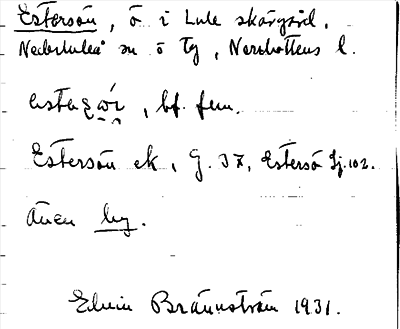 Estersön, ö i Lule skärgård,
Nederluleå sn o tg, Norrbottens l.
bf. fem.
Estersön ek, G. 37, Estersö Sj. 102.
Även by.
Edvin Brännström 1931.